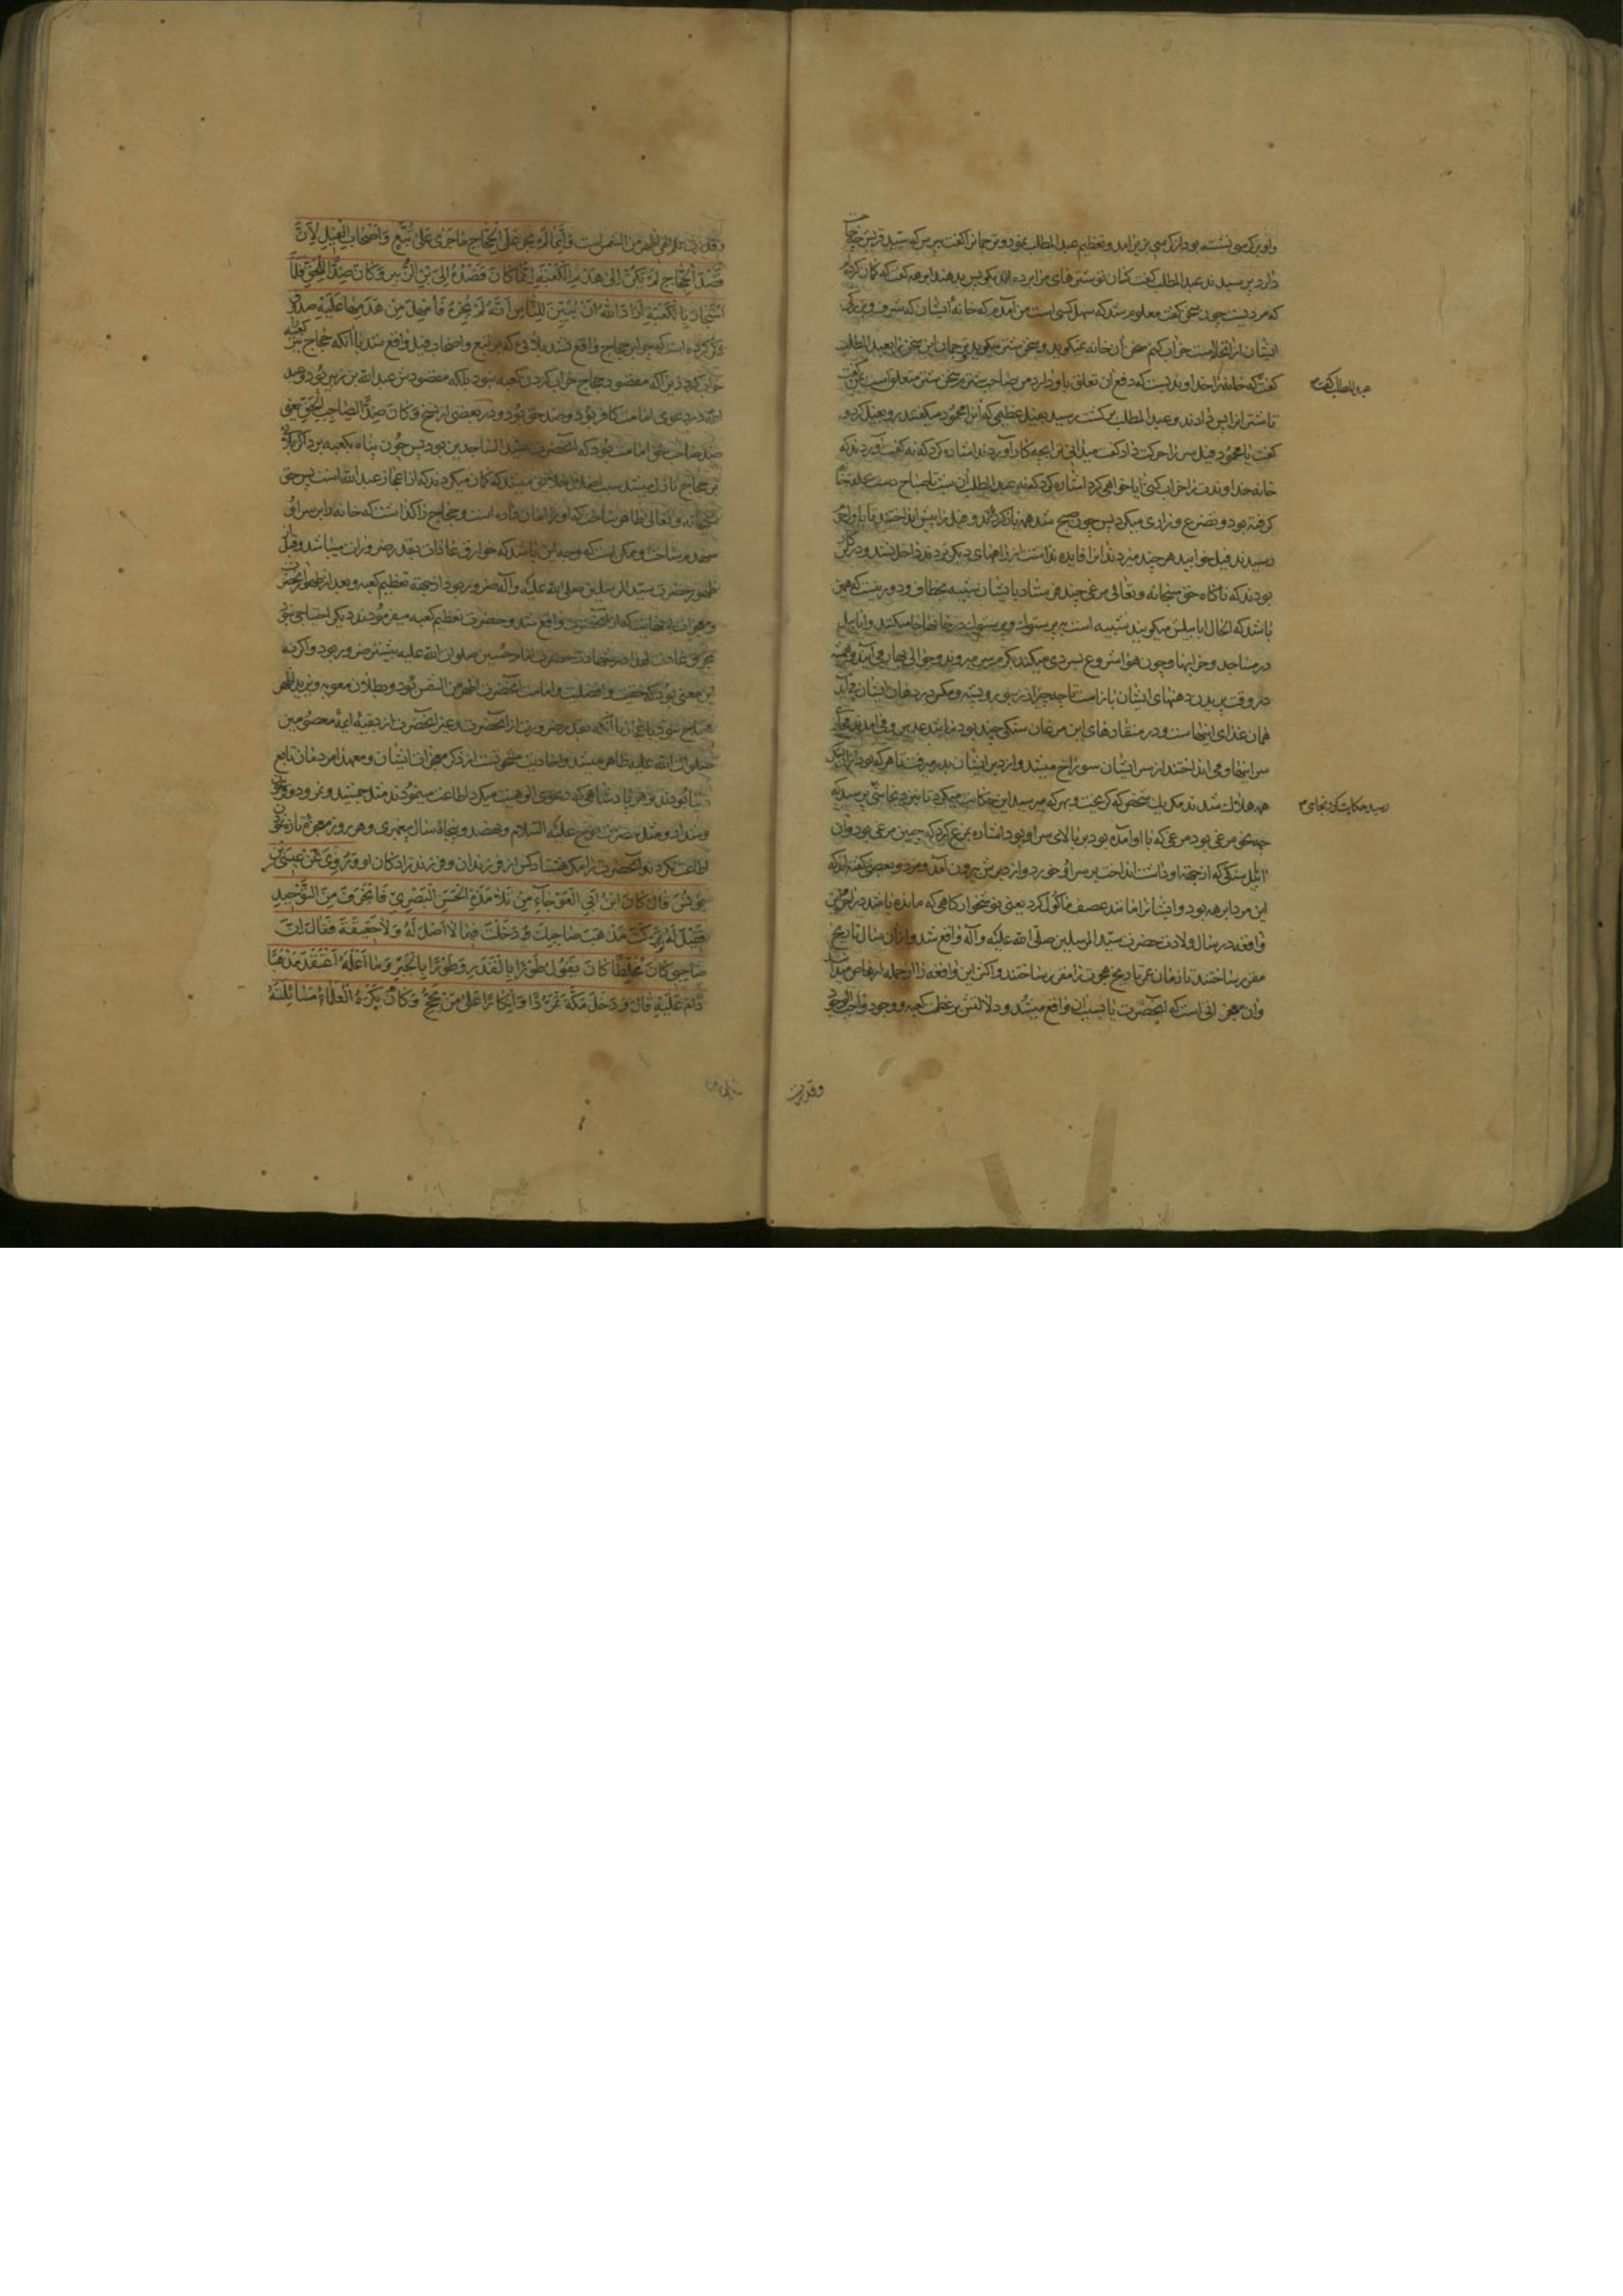 واو بر کرسی نشسته بود از کرسی بزیر آمد و تعظیم عبد المطلب نمود و ترجمانرا گفت بپرس که سید قریش چه حاجت
دارد پرسیدند عبد المطلب گفت کسان تو شترهای مرا برده اند بگو پس بدهند ابرهه گفت که گمان کردم
که مردیست چون سخن گفت معلوم شد که سهل کسی است من آمدم که خانه ایشان که شرف و بزرگی
ایشان از انجاست خراب کنم سخن آن خانه نمیگوید و سخن شتر میگوید ترجمان این سخن را بعبد المطلب
گفت که خانه را خداوندیست که دفع آن تعلق باو دارد من صاحب شترم سخن شتر متعلق است بمن گفت
عبد المطلب گفت
تا شترانرا پس دادند و عبد المطلب برگشت رسید بفیل عظیمی که آنرا محمود میگفتند رو بفیل کرد و
گفت یا محمود فیل سر را حرکت داد گفت میدانی ترا بچه کار آوردند اشاره کرد که نه گفت آوردند که
خانه خداوندت را خراب کنی آیا خواهی کرد اشاره کرد که نه عبد المطلب آن شب تا صباح دست بحلقه خانه
گرفته بود و تضرع و زاری میکرد پس چون صبح شد همه بار کردند و فیل را پیش انداختند تا باول حرم
رسیدند فیل خوابید هر چند میزدند آنرا فایده نداشت از راههای دیگر بردند داخل نشد و درین کار
بودند که ناگاه حق سبحانه و تعالی مرغی چند فرستاد بایشان شبیه بخطاف و دور نیست که همین
باشد که الحال ابابیلش میگویند شبیه است بپرستوک و پرستوک در خانها جا میکند و ابابیل
در مساجد و خرابها و چون هوا شروع بسردی میکند بگرمسیر میروند و حوالی بهار می آیند و همیشه
در وقت پریدن دهنهای ایشان باز است
همان غذای اینهاست و در منقارهای این مرغان سنگی چند بود مانند عدس و می آمدند محاذی
سر اینها و می انداختند از سر ایشان سوراخ میشد و از دبر ایشان بدر میرفت تا هر که بود
همه هلاک شدند مگر یک شخص که گریخت و بهر که میرسید این حکایت میکرد تا بنزد نجاشی پرسید که
رسید حکایت کرد نجاشی
چه نحو مرغی بود مرغی که با او آمده بود بر بالای سر او بود اشاره بمرغ کرد که چنین مرغی بود و آن
ابابیل سنگی که از جهة او داشت انداخت بر سر او خورد و از دبرش بیرون آمد و مرد و بعضی گفته اند که
این مرد ابرهه بود و ایشانرا مانند عصف مأکول کرد یعنی نوشخوار کاهی که مانده باشد در آخور و این
واقعه در سال ولادت حضرت سید المرسلین صلی الله علیه و آله واقع شد و از آن سال تاریخ
مقرر ساختند تا زمان عمر تاریخ هجرت را مقرر ساختند و اکثر این واقعه را از جمله ارهاص میدانند
و آن معجزاتی است که آنحضرت را پیش از آن واقع میشد و دلالتش بر عظمت کعبه و وجود واجب الوجود
وقدرت
وقدرت و علم الهی اظهر من الشمس است وَاِنَّمَا لَمْ یَجْرِ عَلَی الْحَجَّاجِ مَا جَرَی عَلَی تُبَّعٍ وَاَصْحَابِ الْفِیلِ لِاَنَّ
قَصْدَ الْحَجَّاجِ لَمْ یَکُنْ اِلَی هَدْمِ الْکَعْبَةِ اِنَّمَا کَانَ قَصْدُهُ اِلَی ابْنِ الزُّبَیْرِ وَکَانَ ضِدًّا لِلْحَقِّ فَلَمَّا
اسْتَجَارَ بِالْکَعْبَةِ اَرَادَ اللهُ اَنْ یُبَیِّنَ لِلنَّاسِ اَنَّهُ لَمْ یُجِرْهُ فَاَمْهَلَ مَنْ هَدَمَهَا عَلَیْهِ صدوق
ذکر کرده است که چرا بر حجاج واقع نشد بلائی که بر تبع و اصحاب فیل واقع شد با آنکه حجاج نیز کعبه را
خراب کرد زیرا که مقصود حجاج خراب کردن کعبه نبود بلکه مقصودش عبد الله بن زبیر بود و عبد
الله در دعوی امامت کافر بود و ضد حق بود و در بعضی از نسخ وَکَانَ ضِدًّا لِصَاحِبِ الْحَقِّ یعنی
ضد صاحب حق امامت بود که آنحضرت سید الساجدین بود پس چون پناه بکعبه برد اگر بلائی
بر حجاج نازل میشد سبب اضلال خلایق میشد که گمان میکردند که از اعجاز عبد الله است پس حق
سبحانه و تعالی ظاهر ساخت که او را امان نداده است و حجاج را گذاشت که خانه را بر سر او
منهدم ساخت و ممکن است که وجه این باشد که خوارق عادات بقدر ضرورات میباشد و قبل از
ظهور حضرت سید المرسلین صلی الله علیه و آله ضرور بود از جهة تعظیم کعبه و بعد از ظهور آنحضرت
و معجزات بی نهایت که از آنحضرت واقع شد و حضرت تعظیم کعبه میفرمودند دیگر احتیاجی نبود
بخرق عادت لهذا در شهادت حضرت امام حسین صلوات الله علیه بیشتر ضرور بود و اگر نه
این معنی بود که حقیت و افضلیت و امامت آنحضرت اظهر من الشمس بود و بطلان معویه و یزید اظهر
محتاج نبود باعجاز با آنکه بقدر ضرورت از آنحضرت و غیر آنحضرت از بقیه ائمه معصومین
صلوات الله علیهم ظاهر میشد و احادیث مشحونست از ذکر معجزات ایشان و معهذا مردمان تابع
دنیا بودند و هر پادشاهی که دعوی الوهیت میکرد اطاعت مینمودند مثل جمشید و نمرود و فرعون
و شداد و مثل حضرت نوح علیه السلام و نهصد و پنجاه سال پیغمبری و هر روز معجزه تازه
اطاعت نکردند آنحضرت را مگر هشتاد کس از فرزندان و فرزند زادگان او وَرُوِیَ عَنْ عِیسَی بْنِ
یُونُسَ قَالَ کَانَ ابْنُ اَبِی الْعَوْجَاءِ مِنْ تَلَامِذَةِ الْحَسَنِ الْبَصْرِیِّ فَانْحَرَفَ عَنِ التَّوْحِیدِ
فَقِیلَ لَهُ تَرَکْتَ مَذْهَبَ صَاحِبِکَ وَدَخَلْتَ فِیمَا لَا اَصْلَ لَهُ وَلَا حَقِیقَةَ فَقَالَ اِنَّ
صَاحِبِی کَانَ مُخَلِّطًا کَانَ یَقُولُ طَوْرًا بِالْقَدَرِ وَطَوْرًا بِالْجَبْرِ وَمَا اَعْلَمُهُ اعْتَقَدَ مَذْهَبًا
دَامَ عَلَیْهِ قَالَ وَدَخَلَ مَکَّةَ تَمَرُّدًا وَاِنْکَارًا عَلَی مَنْ یَحُجُّ وَکَانَ یَکْرَهُ الْعُلَمَاءُ مُسَائَلَتَهُ